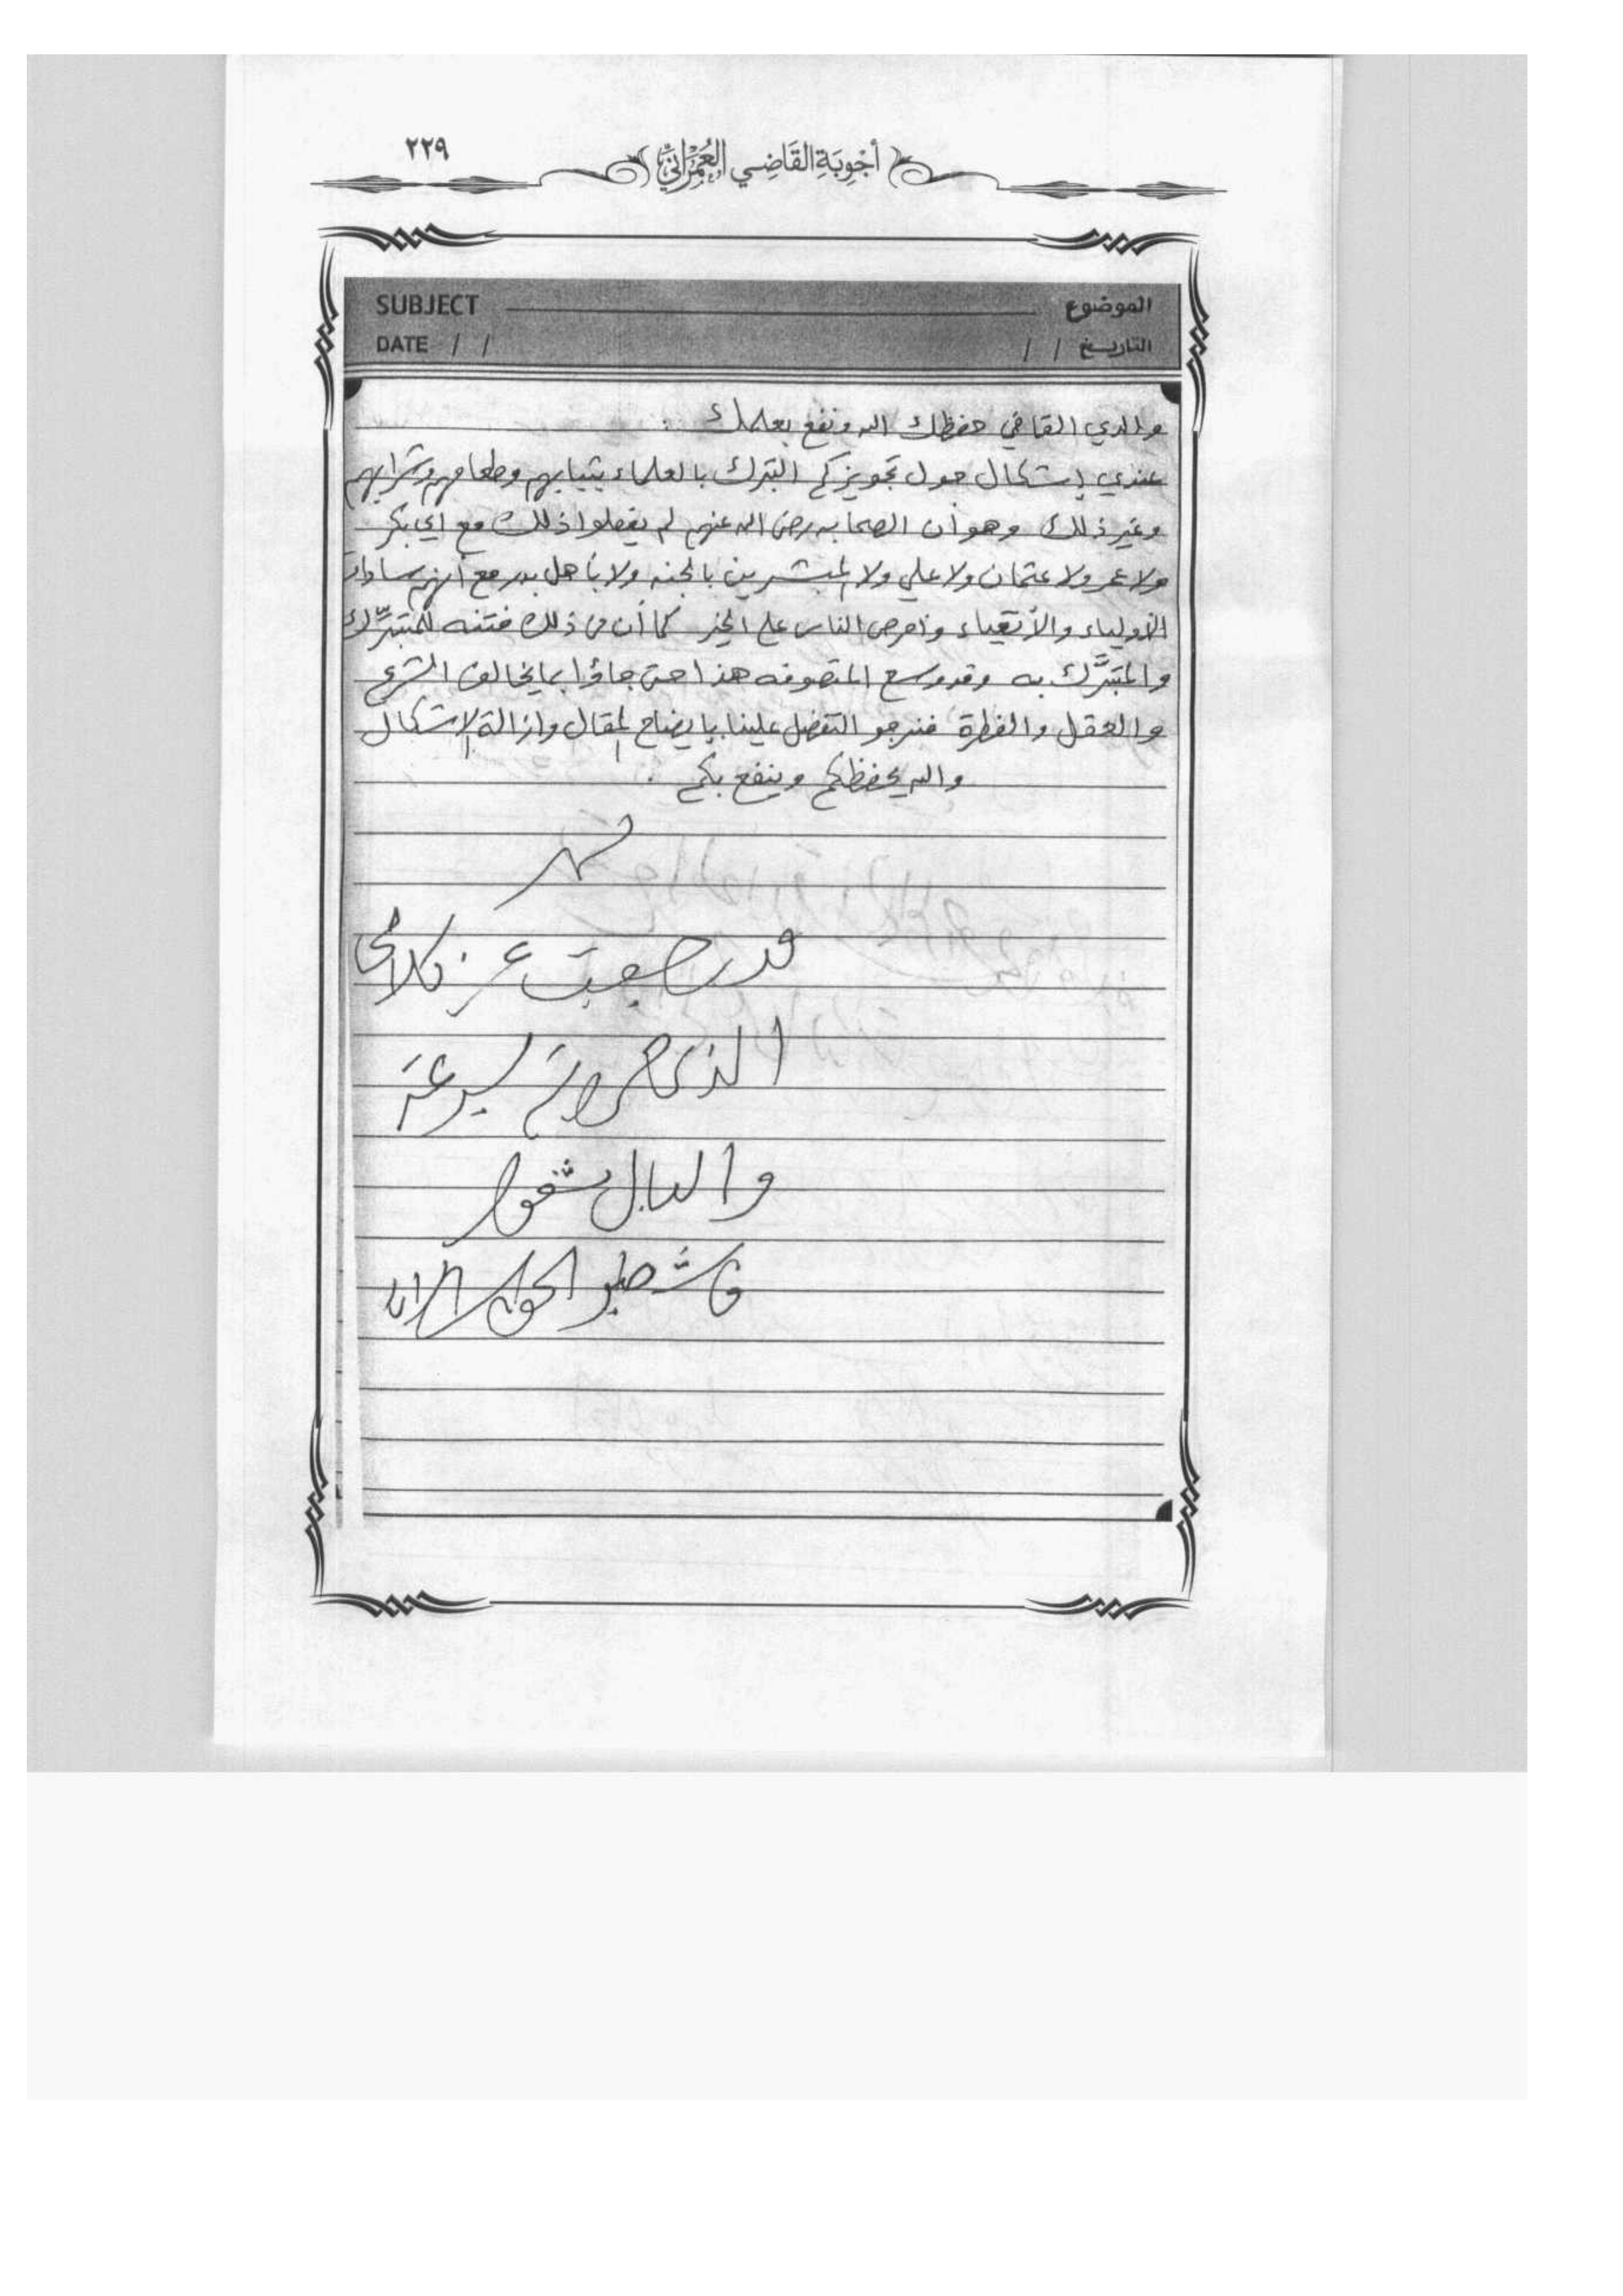 ٢٢٩
أَجْوِبَةِ القَاضِي العُمْرَانِيِّ
SUBJECT الموضوع
DATE / / التاريخ / /
والدي القاضي حفظك الله ونفع بعلمك :
عندي إشكال حول تجويزكم التبرك بالعلماء بثيابهم وطعامهم وشرابهم
وغير ذلك وهو أن الصحابه رضي الله عنهم لم يفعلوا ذلك مع أبي بكر
ولا عمر ولا عثمان ولا علي ولا المبشرين بالجنه ولا بأهل بدر مع أنهم سادات
الأولياء والأتقياء وأحرص الناس على الخير كما أن في ذلك فتنه للمتبرِّك
والمتبرَّك به وقد وسع المتصوفه هذا حتى جاؤا بما يخالف الشرع
والعقل والفطرة فنرجو التفضل علينا بإيضاح المقال وازالة الإشكال
والله يحفظكم وينفع بكم .
قد رجعت عن كلامي
الذي بسرعة
والبال مشغول
الجواب